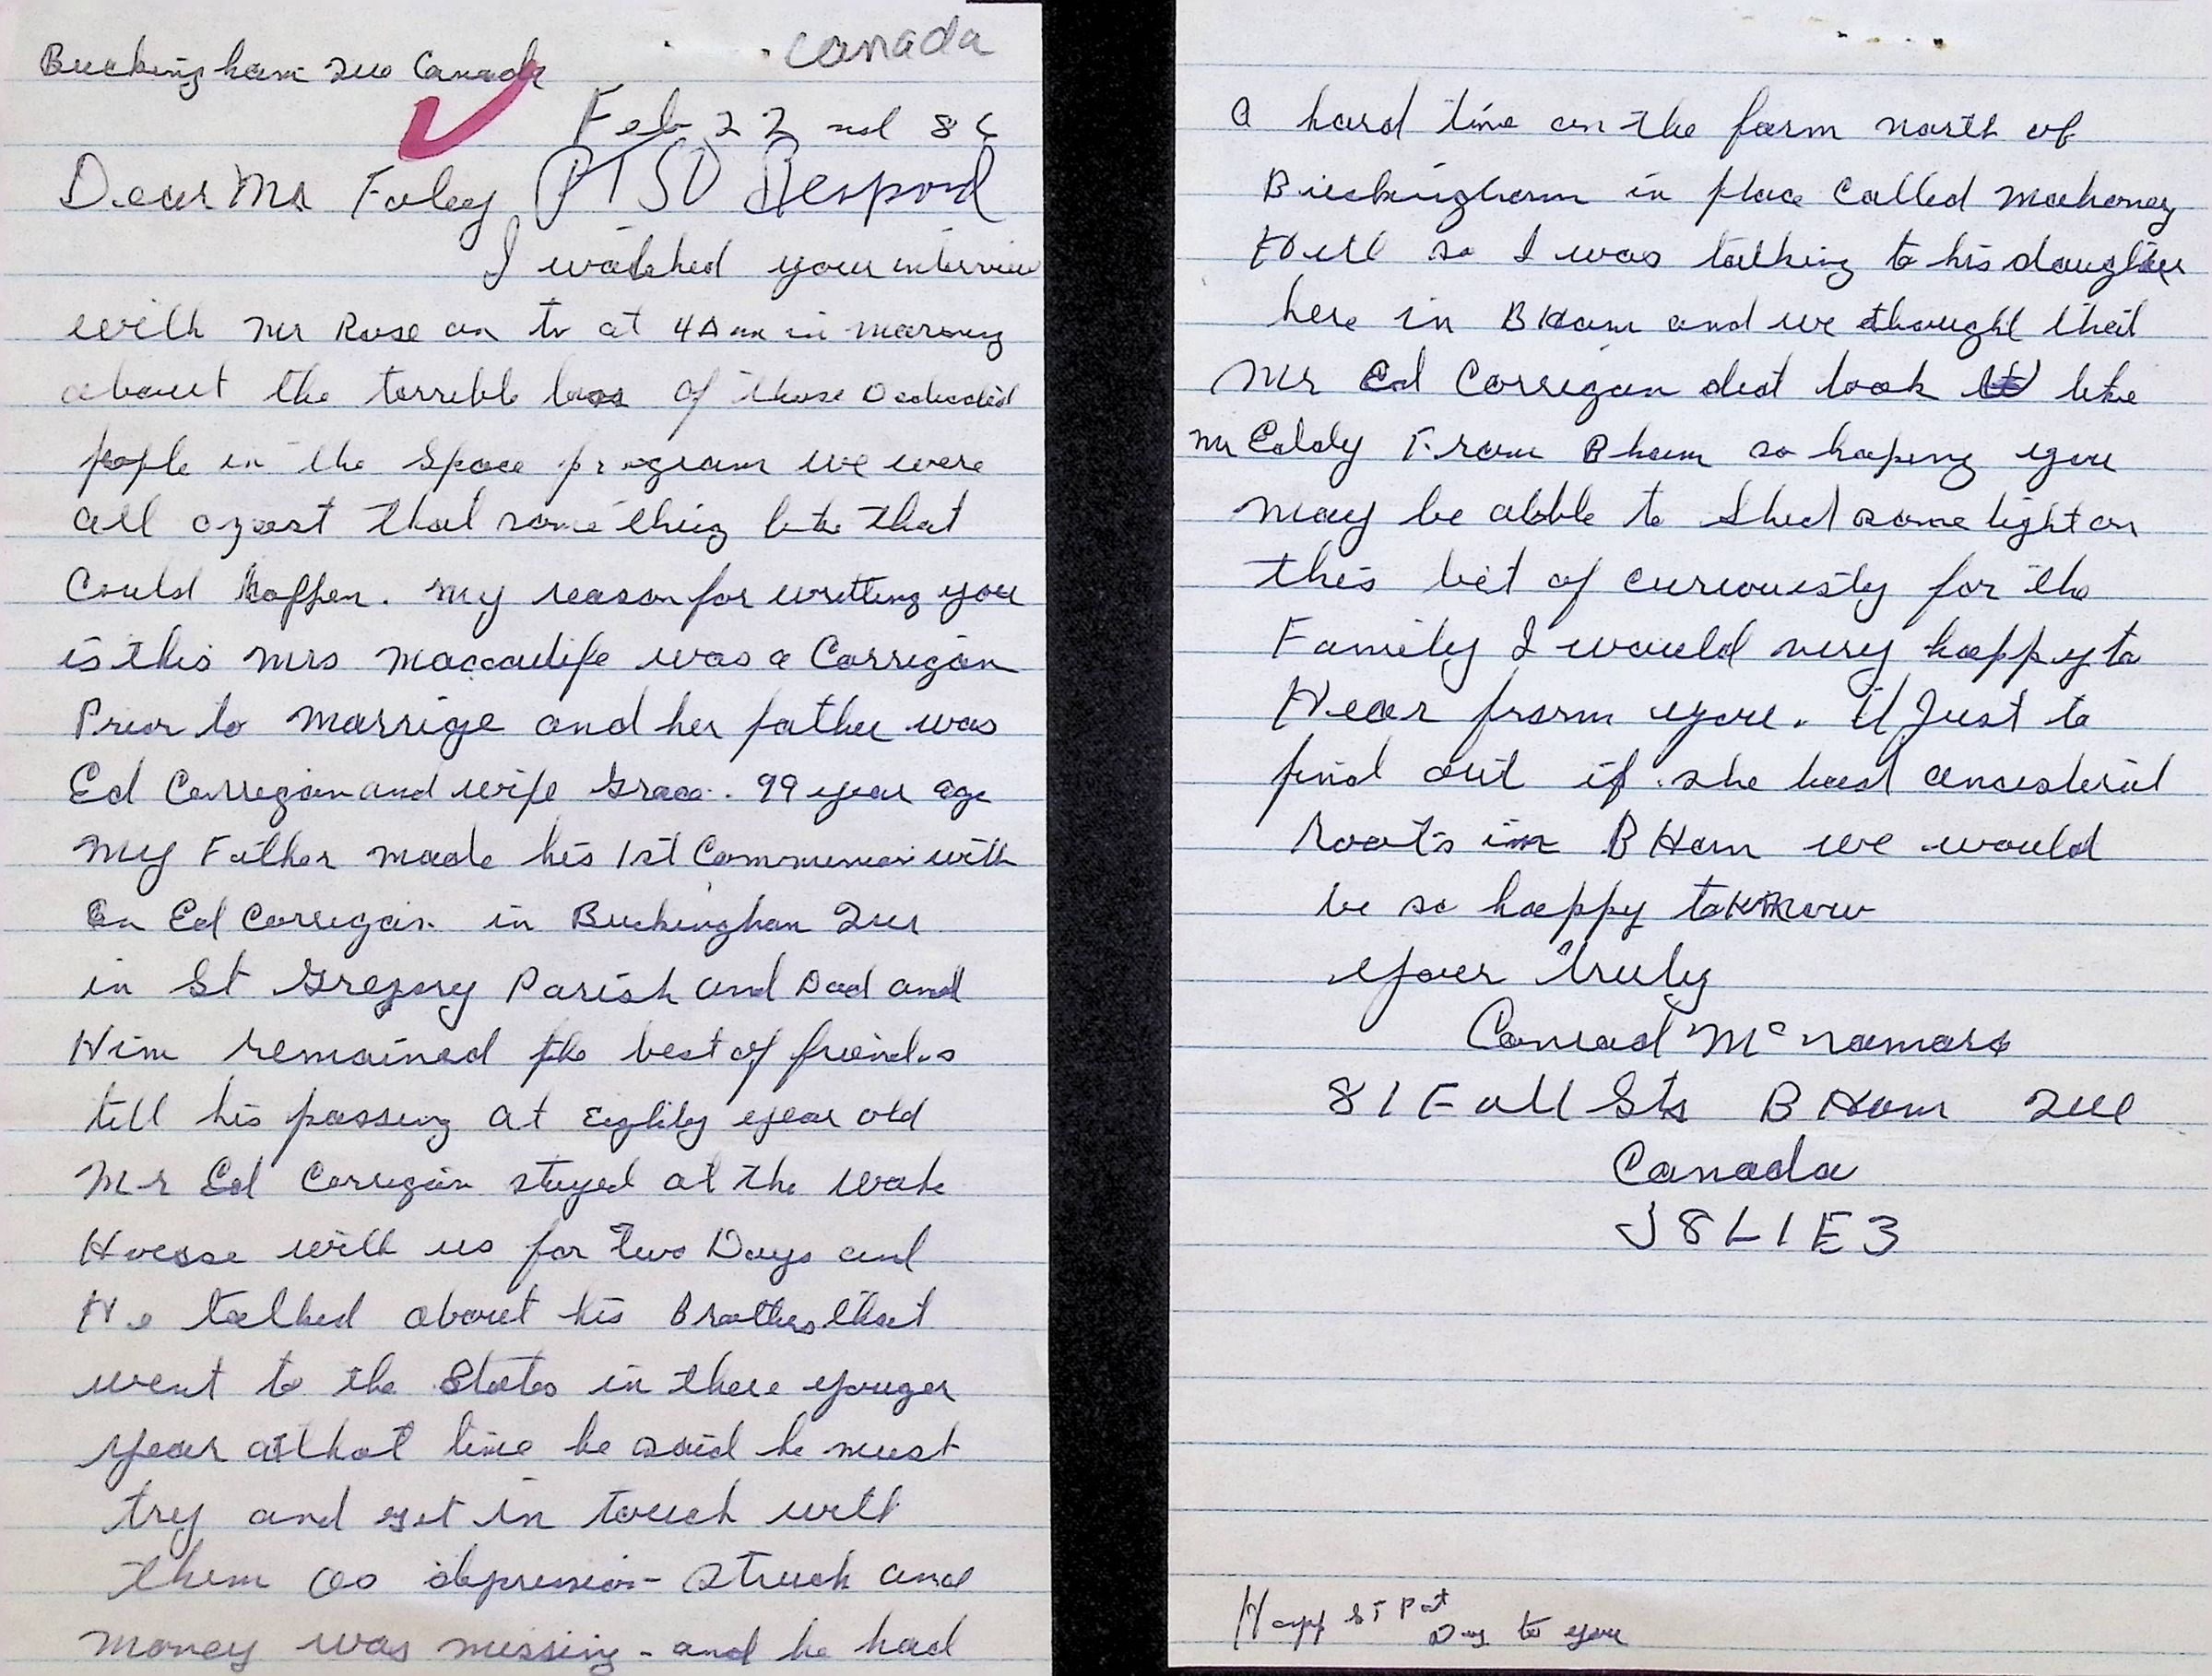 Canada
Buckingham Que Canada
Feb 22 nd 86
Dear Mr Foley PTSD Respond
I watched your interview
with Mr Rose on tv at 4 Am in morning
about the terrible loss of those Dedicated
people in the Space program we were
all that something like that
Could happen. My reason for writting you
is this Mrs Maccaulife was a Corrigan
Prior to Marrige and her father was
Ed Corrigan and wife Grace. 99 year ago
My Father made his 1st Communion with
an Ed Corrigan in Buckingham Que
in St Gregory Parish and Dad and
Him remained the best of friends
till his passing at Eighty year old
Mr Ed Corrigan stayed at the wake
House with us for two Days and
He talked about his Brothers that
went to the States in there younger
year at that time he said he must
try and get in touch with
them as depression struck and
money was missing - and he had
a hard time on the farm north of
Buckingham in place Called Mahoney
Hill so I was talking to his daughter
here in B Ham and we thought that
Mr Ed Corrigan did look like
Mr Eddy From B ham so hoping you
may be abble to shed some light on
this bit of curiousty for the
Family I would very happy to
Hear from you. If Just to
find out if she had ancesterial
Roots in B Ham we would
be so happy to know
your truly
Conrad McNamara
81 Fall Sts B Ham Que
Canada
J8L1E3
Happ ST Pat
Day to you